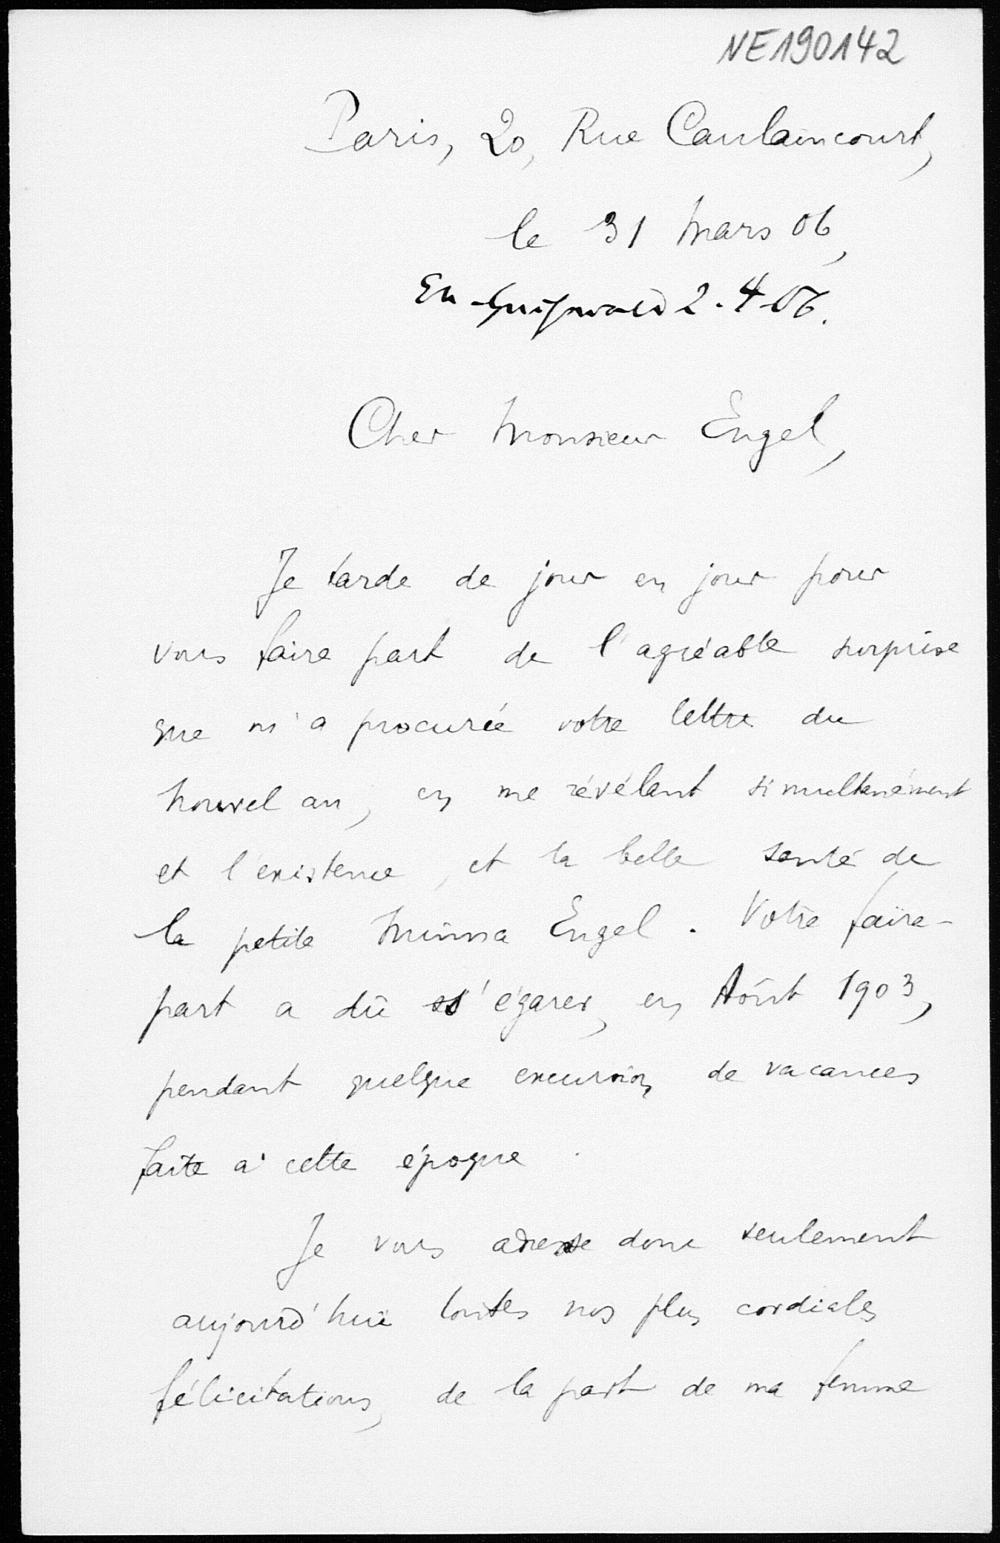 NE190142
Paris, 20, Rue Caulaincourt,
le 31 Mars 06,
En Greifswald 2.4.06.
Cher Monsieur Engel,
Je tarde de jour en jour pour
vous faire part de l'agréable surprise
que m'a procurée votre lettre du
nouvel an, en me révélant simultanément
et l'existence, et la belle santé de
la petite Minna Engel. Votre faire-
part a dû s'égarer, en Août 1903,
pendant quelque excursion de vacances
faite à cette époque.
Je vous adresse donc seulement
aujourd'hui toutes nos plus cordiales
félicitations, de la part de ma femme